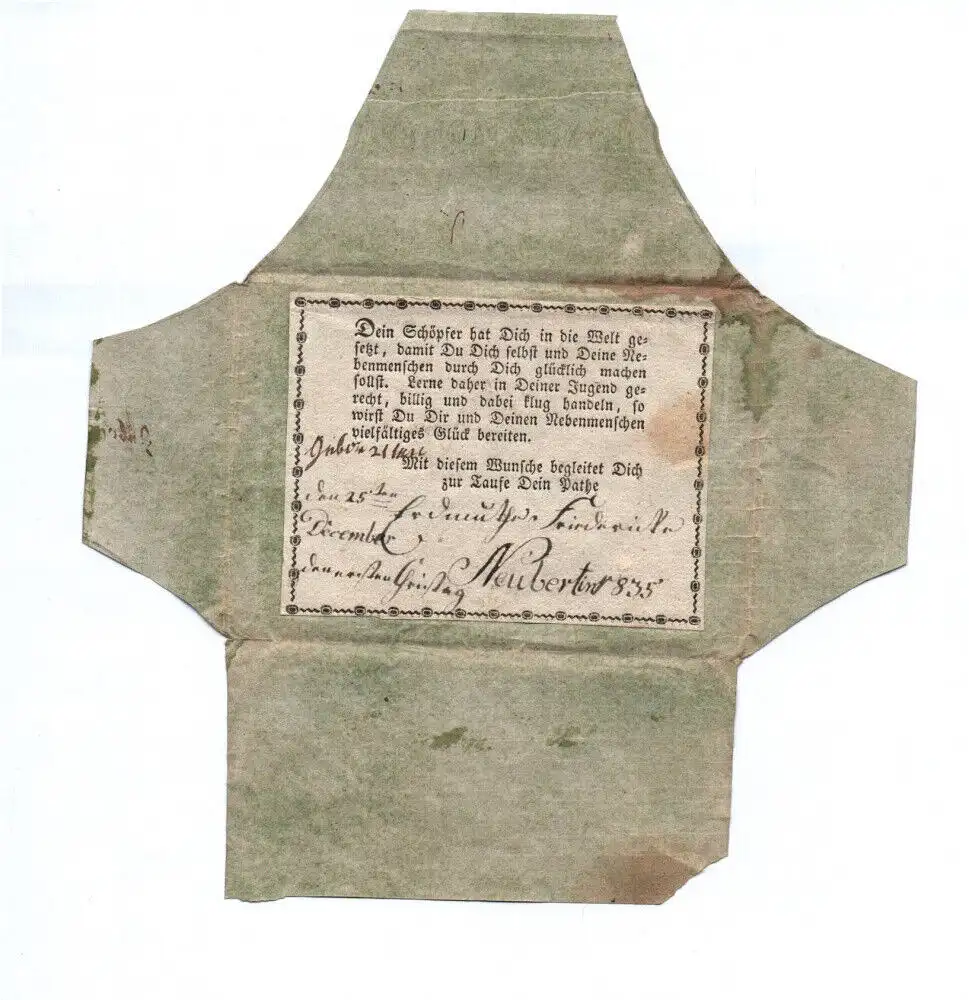 Dein Schöpfer hat Dich in die Welt ge-
setzt, damit Du Dich selbst und Deine Ne-
benmenschen durch Dich glücklich machen
sollst. Lerne daher in Deiner Jugend ge-
recht, billig und dabei klug handeln, so
wirst Du Dir und Deinen Nebenmenschen
vielfältiges Glück bereiten.
21
Mit diesem Wunsche begleitet Dich
zur Taufe Dein Pathe
den 25ten
Erdmuthe Friedericke
December
Neubertin 1835
den ersten Christag